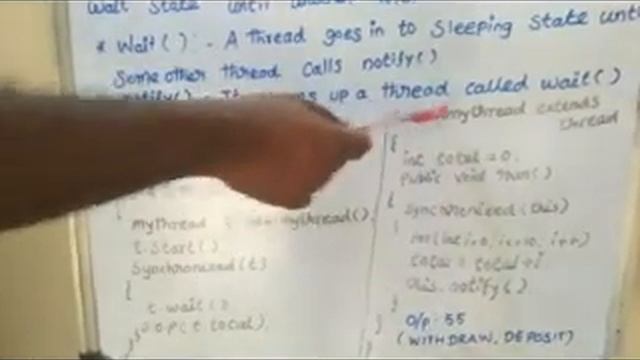 Wait State until
* Wait( ) :- A thread goes in to Sleeping State unti
Some other thread calls notify( )
notify( ) - up a thread called wait( )
mythread extends
thread
{
int total = 0.
Public void run( )
{ Synchronized (this)
{
total = total + i
this. notify( )
}
} O/p. 55
(WITH DRAW, DEPOSIT)
{
mythread t mythread( ),
t. Start( )
Synchronized (t)
{
t. wait( )
S.O.P (t. total).